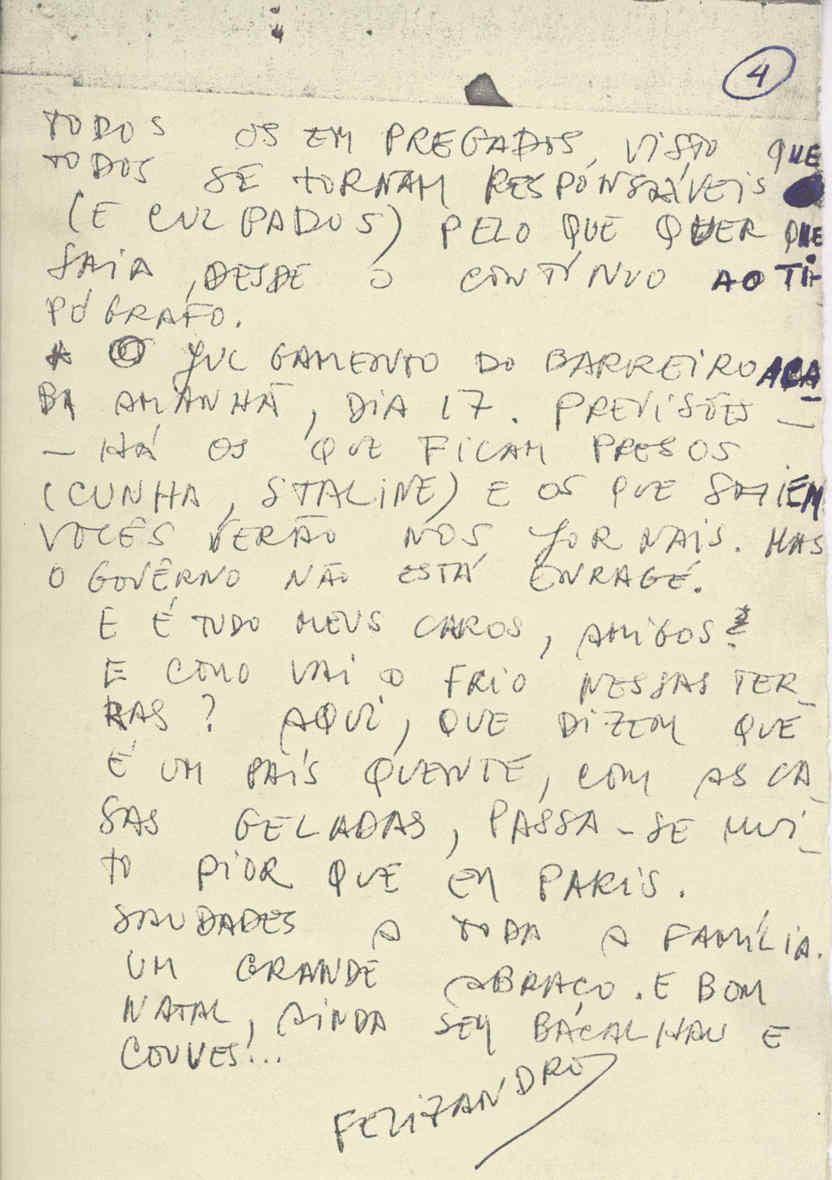 4
TODOS OS EMPREGADOS, VISTO QUE
TODOS SE TORNAM RESPONSÁVEIS
(E CULPADOS) PELO QUE QUER QUE
SAIA, DESDE O CONTÍNUO AO TI-
PÓGRAFO.
JULGAMENTO DO BARREIRO ACA-
BA AMANHÃ, DIA 17. PREVISÕES –
– HÁ OS QUE FICAM PRESOS
(CUNHA, STALINE) E OS QUE SAIEM
VOCÊS VERÃO NOS JORNAIS. MAS
O GOVÊRNO NÃO ESTÁ ENRAGÉ.
E É TUDO MEUS CAROS, AMIGOS?
E COMO VAI O FRIO NESSAS TER-
RAS? AQUI, QUE DIZEM QUE
É UM PAÍS QUENTE, COM AS CA-
SAS GELADAS, PASSA-SE MUI-
TO PIOR QUE EM PARIS.
SAUDADES A TODA A FAMÍLIA.
UM GRANDE ABRAÇO. E BOM
NATAL, AINDA SEM BACALHAU E
COUVES!...
FELIZANDRO